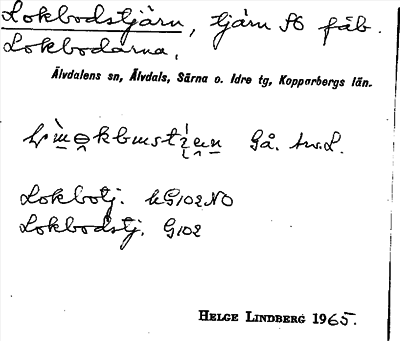 Lokbodstjärn, tjärn SO fäb.
Lokbodarna,
Älvdalens sn, Älvdals, Särna o. Idre tg, Kopparbergs län.
Gå.
Lokbotj. kG102NO
Lokbodstj. G102
HELGE LINDBERG 1965.